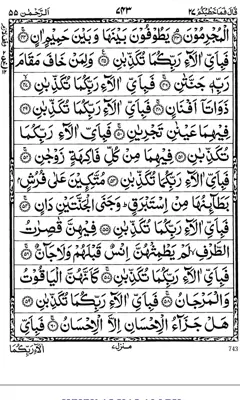 قَالَ فَمَا خَطْبُكُمْ ٢٧ ٧٤٣ اَلرَّحْمٰن ٥٥
الْمُجْرِمُوْنَ ﴿٤٣﴾ يَطُوْفُوْنَ بَيْنَهَا وَبَيْنَ حَمِيْمٍ اٰنٍ ﴿٤٤﴾
فَبِاَيِّ اٰلَآءِ رَبِّكُمَا تُكَذِّبٰنِ ﴿٤٥﴾ وَلِمَنْ خَافَ مَقَامَ
رَبِّهٖ جَنَّتٰنِ ﴿٤٦﴾ فَبِاَيِّ اٰلَآءِ رَبِّكُمَا تُكَذِّبٰنِ ﴿٤٧﴾
ذَوَاتَآ اَفْنَانٍ ﴿٤٨﴾ فَبِاَيِّ اٰلَآءِ رَبِّكُمَا تُكَذِّبٰنِ ﴿٤٩﴾
فِيْهِمَا عَيْنٰنِ تَجْرِيٰنِ ﴿٥٠﴾ فَبِاَيِّ اٰلَآءِ رَبِّكُمَا
تُكَذِّبٰنِ ﴿٥١﴾ فِيْهِمَا مِنْ كُلِّ فَاكِهَةٍ زَوْجٰنِ ﴿٥٢﴾
فَبِاَيِّ اٰلَآءِ رَبِّكُمَا تُكَذِّبٰنِ ﴿٥٣﴾ مُتَّكِـِٕيْنَ عَلٰى فُرُشٍۭ
بَطَآئِنُهَا مِنْ اِسْتَبْرَقٍ ؕ وَجَنَا الْجَنَّتَيْنِ دَانٍ ﴿٥٤﴾
فَبِاَيِّ اٰلَآءِ رَبِّكُمَا تُكَذِّبٰنِ ﴿٥٥﴾ فِيْهِنَّ قٰصِرٰتُ
الطَّرْفِ ۙ لَمْ يَطْمِثْهُنَّ اِنْسٌ قَبْلَهُمْ وَلَا جَآنٌّ ﴿٥٦﴾
فَبِاَيِّ اٰلَآءِ رَبِّكُمَا تُكَذِّبٰنِ ﴿٥٧﴾ كَاَنَّهُنَّ الْيَاقُوْتُ
وَالْمَرْجَانُ ﴿٥٨﴾ فَبِاَيِّ اٰلَآءِ رَبِّكُمَا تُكَذِّبٰنِ ﴿٥٩﴾
هَلْ جَزَآءُ الْاِحْسَانِ اِلَّا الْاِحْسَانُ ﴿٦٠﴾ فَبِاَيِّ
743 منزل ٧ اٰلَآءِ رَبِّكُمَا